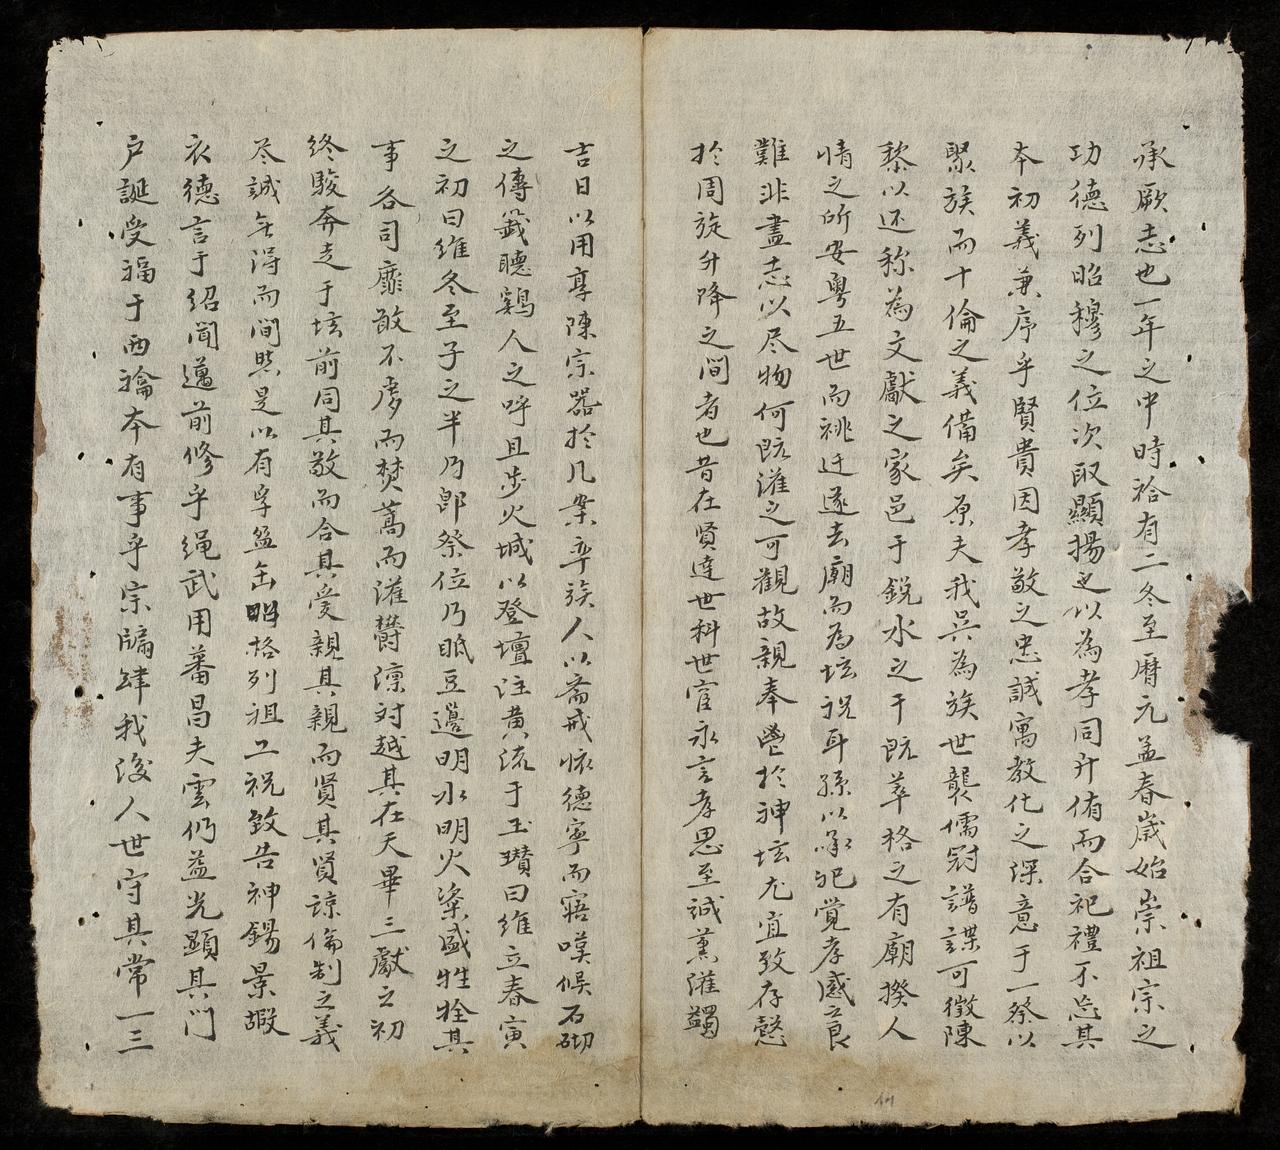 承厥志也一年之中時祫有二冬至曆元孟春歲始崇祖宗之
功德列昭穆之位次取顯揚之以為孝同升侑而合祀禮不忘其
本初義兼序乎賢貴因孝敬之忠誠寓教化之深意于一祭以
聚族而十倫之義備矣原夫我吳為族世襲儒冠譜諜可徵陳
黎以还称為文獻之家邑于銳水之干既萃格之有廟揆人
情之所安粵五世而祧迁遂去廟而為坛祝耳孫以承祀覺孝感良
難非盡志以尽物何既灌之可觀故親奉鬯於神坛尤宜致存慤
於周旋升降之间者也昔在贤達世科世宦永言孝思至誠薰灌蠲
吉日以用享陳宗器於几案率族人以斋戒怀德寧而寤嘆候石砌
之傳籤聽鷄人之呼旦步火城以登壇注黄流于玉瓚曰維立春寅
之初曰維冬至子之半乃即祭位乃眂豆邊明水明火粢盛牲牷其
事各司靡敢不虔而焚蒿而灌欝凜对越其在天畢三獻之初
终駿奔走于坛前同其敬而合其爱親其親而賢其贤諒倫制之義
尽誠无得而间然是以有孚盈缶昭格列祖工祝致告神錫景嘏
衣德言于绍闻邁前修乎绳武用蕃昌夫雲仍益光顕其门
户誕受福于西禴本有事乎宗牖肆我後人世守其常一三